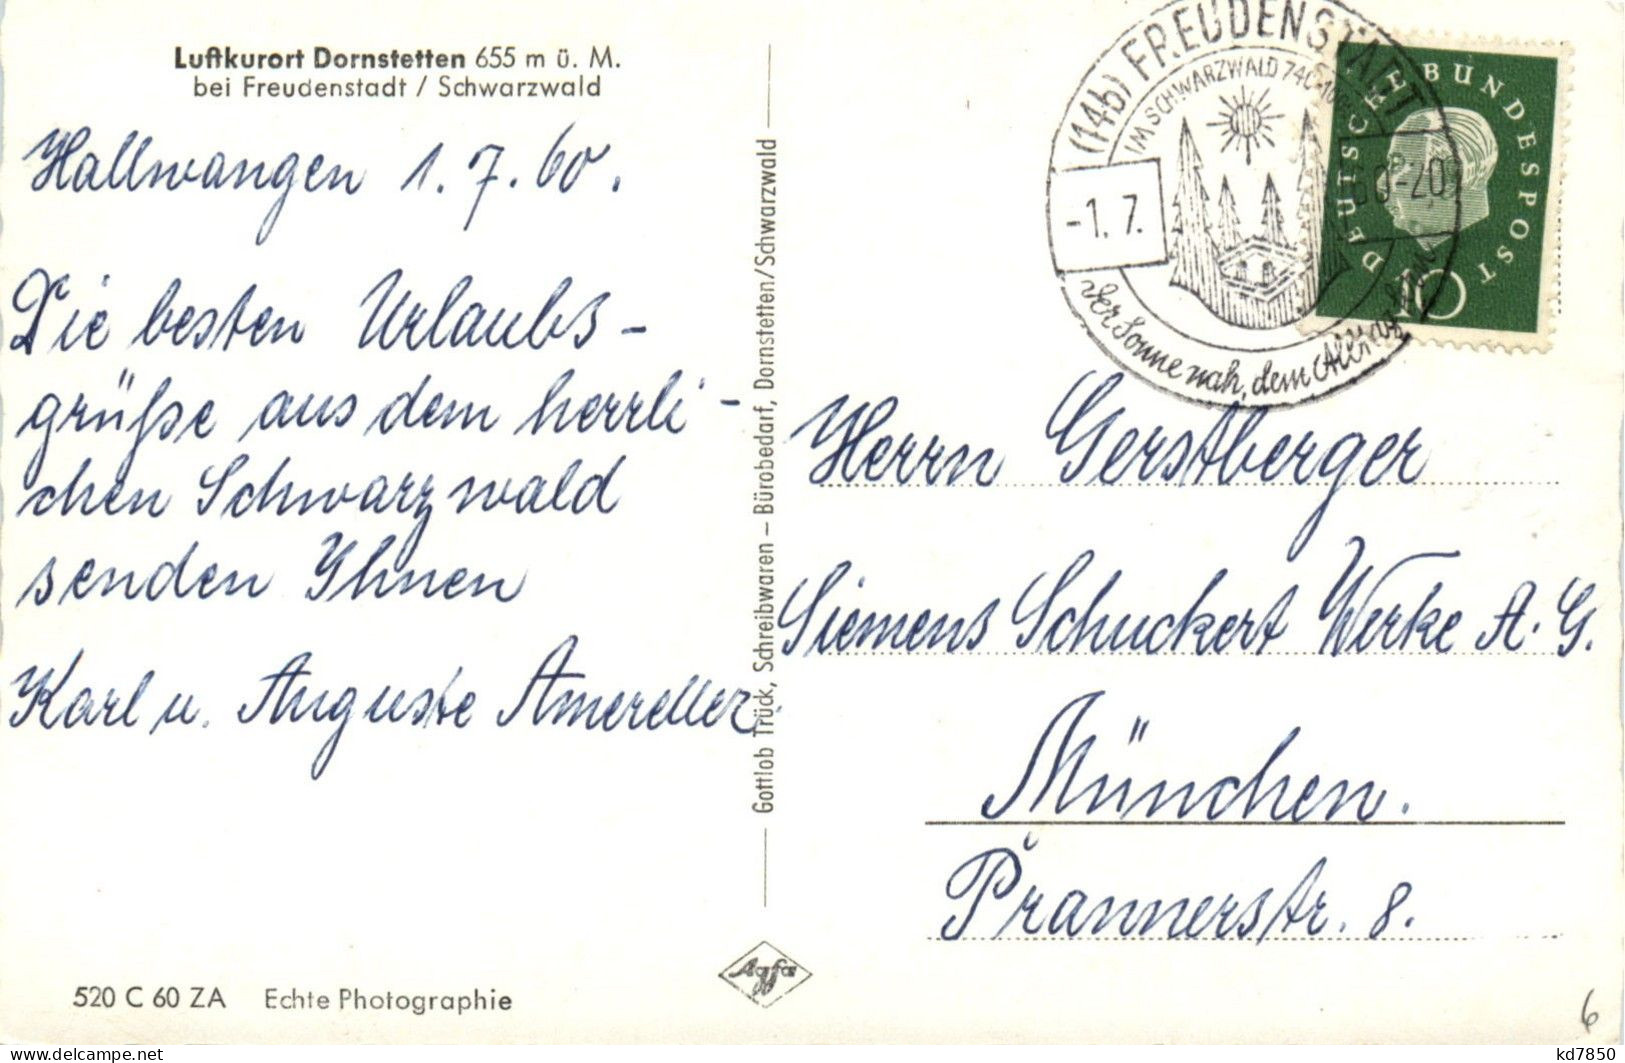 Luftkurort Dornstetten 655 m ü. M.
bei Freudenstadt / Schwarzwald
Hallwangen 1. 7. 60.
Die besten Urlaubs-
grüße aus dem herrli-
chen Schwarzwald
senden Ihnen
Karl u. Auguste Amereller.
520 C 60 ZA Echte Photographie
Gottlob Trück, Schreibwaren – Bürobedarf, Dornstetten/Schwarzwald
Agfa
(14b) FREUDENSTADT
IM SCHWARZWALD 740-
-1. 7. 60-20
der Sonne nah, dem Alltag fern
DEUTSCHE BUNDESPOST
10
Herrn Gerstberger
Siemens Schuckert Werke A. G.
München.
Prannerstr. 8.
6
kd7850